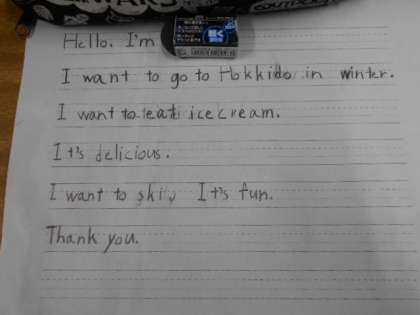 Hello. I'm
I want to go to Hokkido in winter.
I want to eat icecream.
It's delicious.
I want to ski. It's fun.
Thank you.